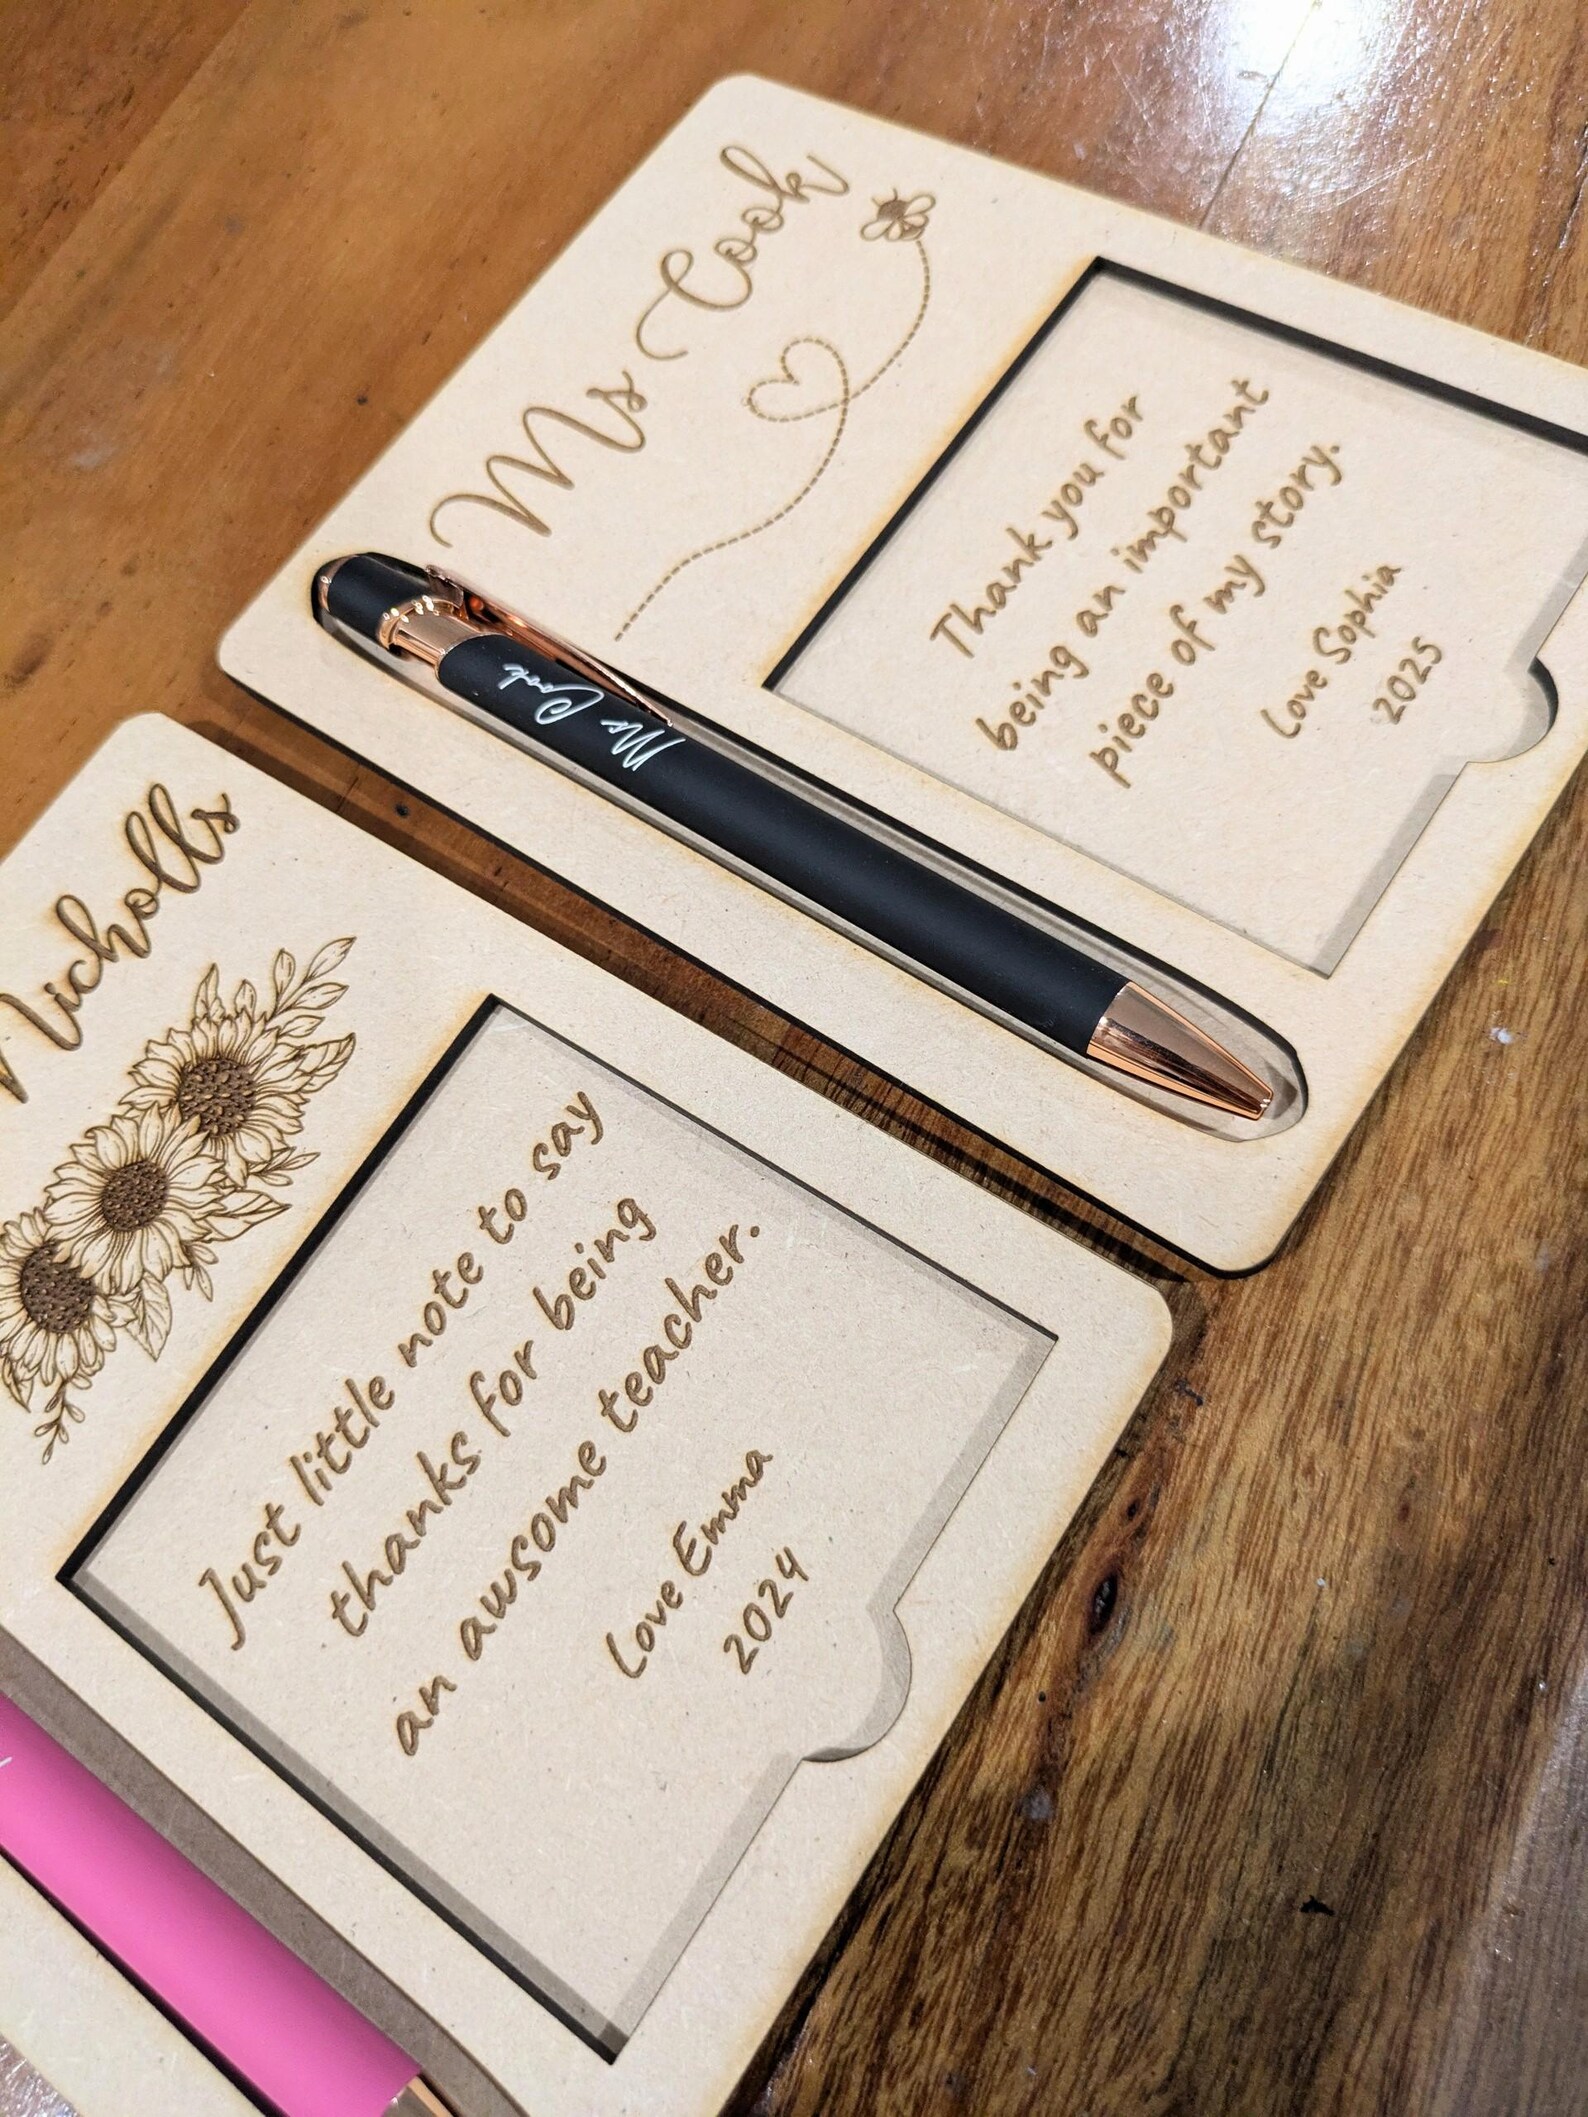 Ms Cook
Thank you for
being an important
piece of my story.
Love Sophia
2025
Ms Cook
Nicholls
Just little note to say
thanks for being
an awsome teacher.
Love Emma
2024